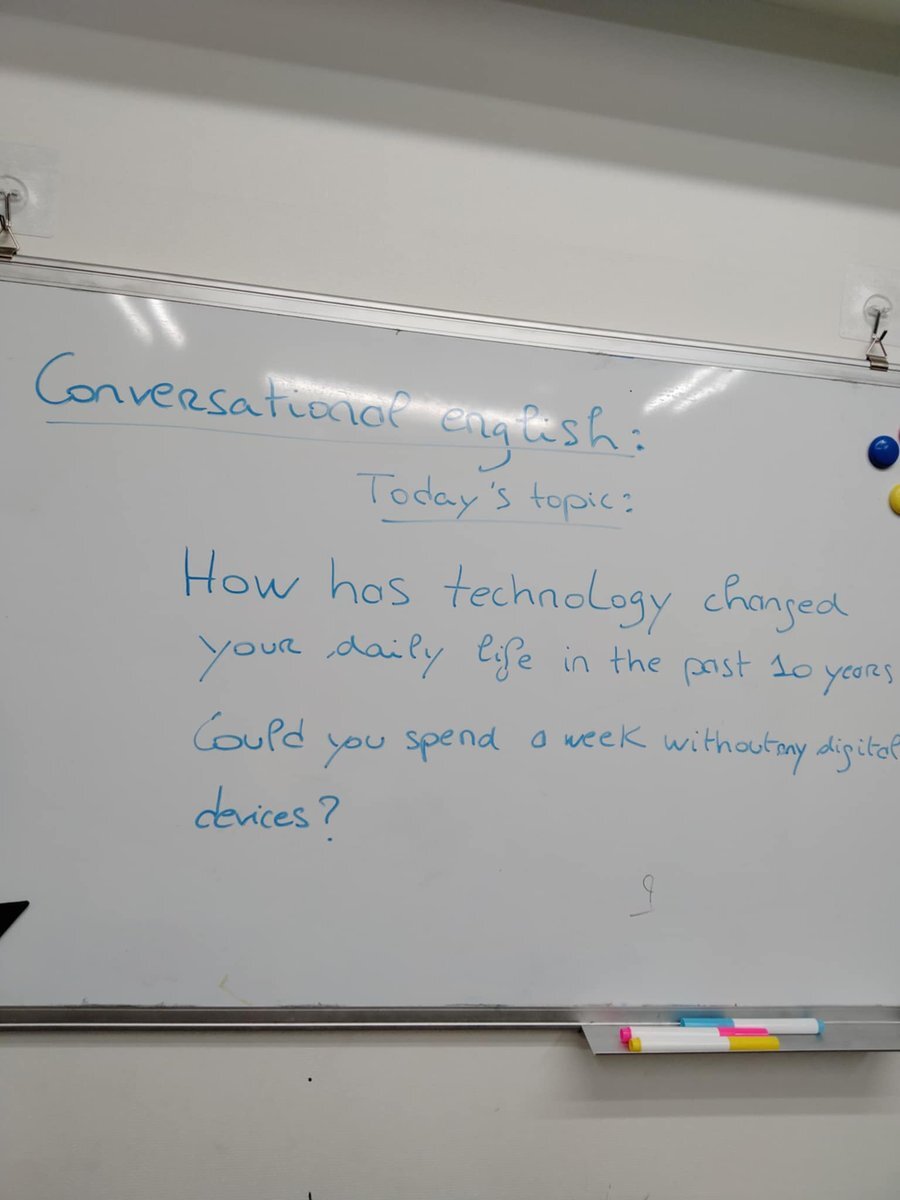 Conversational english:
Today's topic:
How has technology changed
your daily life in the past 10 years
Could you spend a week without any digital
devices?